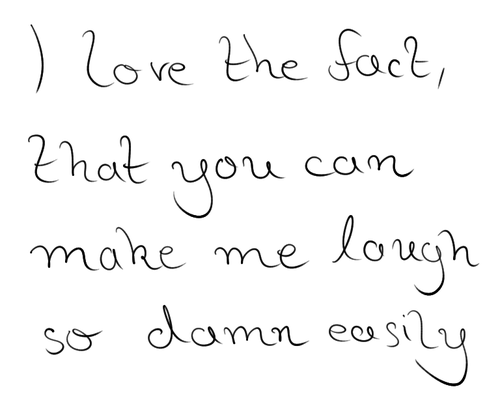 I love the fact,
that you can
make me lough
so damn easily